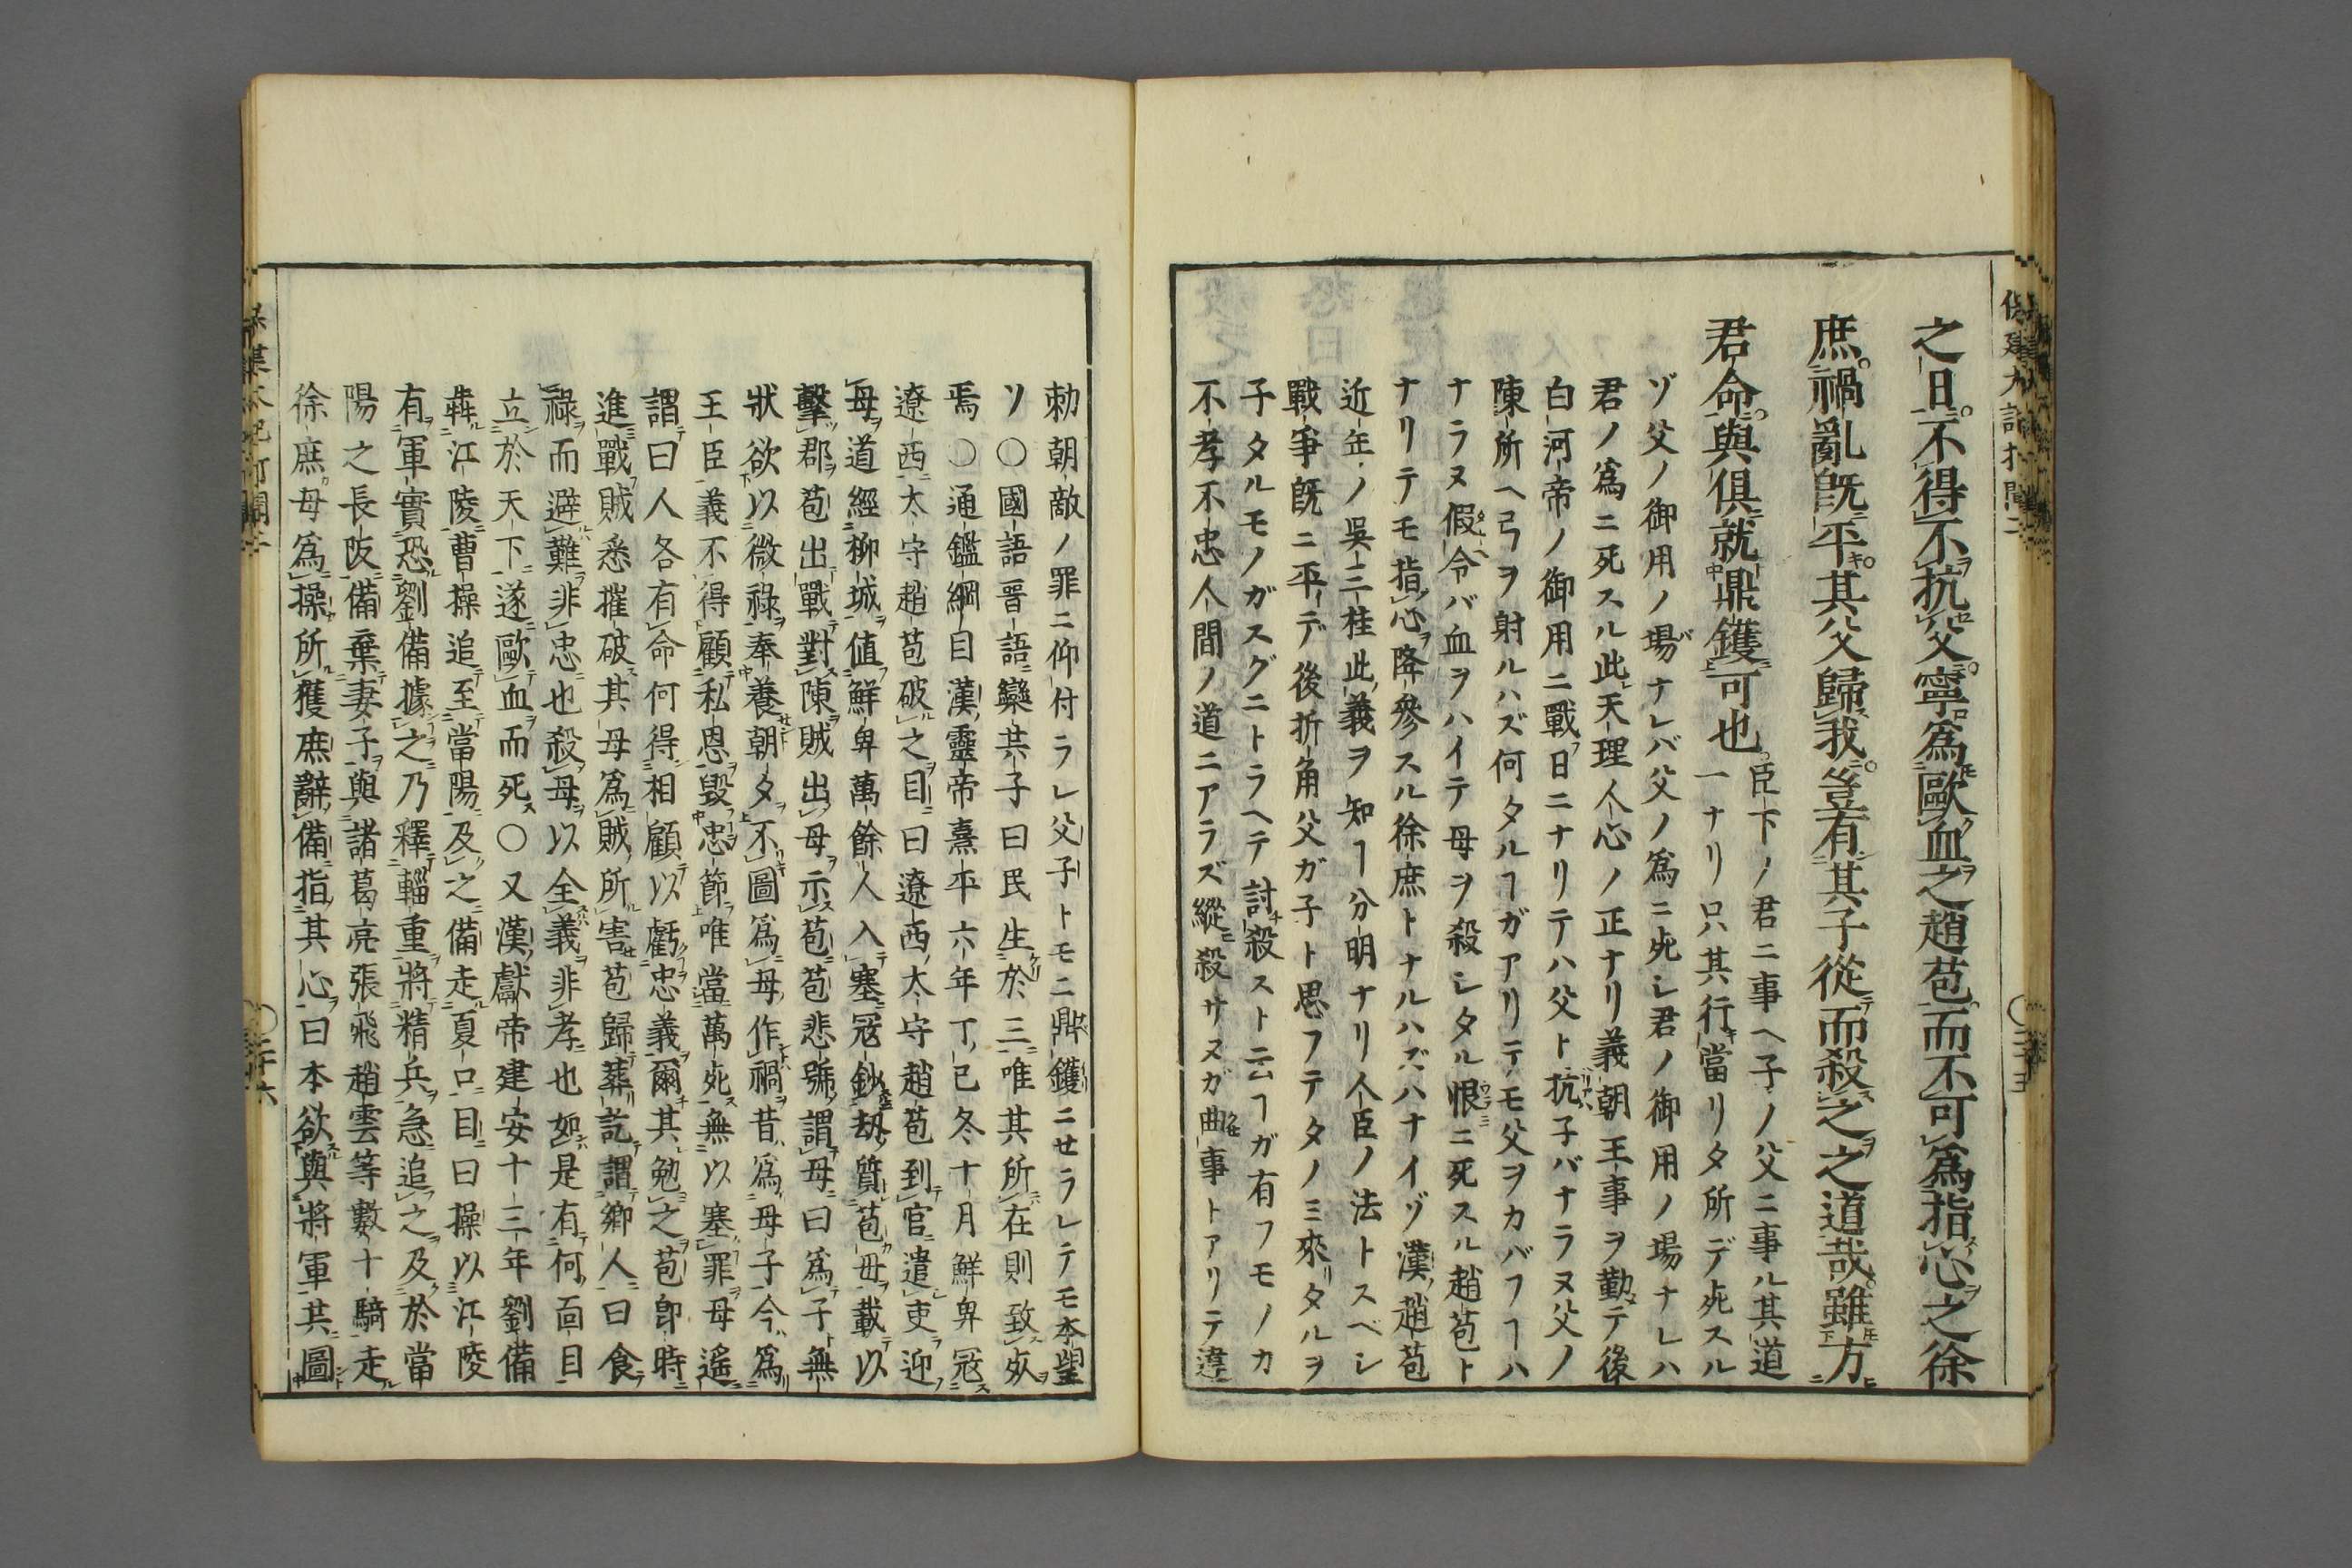 之日不得不抗父寧爲歐血之趙苞而不可爲指心之徐
庶禍亂既平其父歸我豈有其子從而殺之之道哉雖方
君命與俱就鼎鑊可也
臣下ノ君ニ事ヘ子ノ父ニ事ル其道
一ナリ只其行當リタ所デ死スル
ゾ父ノ御用ノ場ナレバ父ノ爲ニ死シ君ノ御用ノ場ナレハ
君ノ爲ニ死スル此天理人心ノ正ナリ義朝王事ヲ勤テ後
白河帝ノ御用ニ戰日ニナリテハ父ト抗子バナラヌ父ノ
陳所ヘ弓ヲ射ルハズ何タルヿガアリテモ父ヲカバフヿハ
ナラヌ假令バ血ヲハイテ母ヲ殺シタル恨ニ死スル趙苞ト
ナリテモ指心降參スル徐庶トナルハズハナイゾ漢趙苞
近年ノ吳三桂此義ヲ知ヿ分明ナリ人臣ノ法トスベシ
戰爭既ニ平デ後折角父ガ子ト思フテタノミ來リタルヲ
子タルモノガスグニトラヘテ討殺ストニ云ヿガ有フモノカ
不孝不忠人間ノ道ニアラズ縱殺サヌガ曲事トアリテ違
勅朝敵ノ罪ニ仰付ラレ父子トモニ鼎鑊ニせラレテモ本望
ソ〇國語晋語欒共子曰民生於三唯其所在則致死
焉〇通鑑綱目漢靈帝熹平六年丁巳冬十月鮮卑冦
遼西太守趙苞破之目曰遼西太守趙苞到官遣吏迎
母道經柳城値鮮卑萬餘人入塞冦鈔劫質苞母載以
擊郡苞出戰對陳賊出母示苞苞悲號謂母曰爲子無
狀欲以微祿奉養朝夕不圖爲母作禍昔爲母子今爲
王臣義不得顧私恩毀忠節唯當萬死無以塞罪母遙
謂曰人各有命何得相顧以虧忠義爾其勉之苞卽時
進戰賊悉摧破其母爲賊所害苞歸葬訖謂鄉人曰食
祿而避難非忠也殺母以全義非孝也如是有何面目
立於天下遂歐血而死〇又漢獻帝建安十三年劉備
犇江陵曹操追至當陽及之備走夏口目曰操以江陵
有軍實恐劉備據之乃釋輜重將精兵急追之及於當
陽之長阪備棄妻子與諸葛亮張飛趙雲等數十騎走
徐庶母爲操所獲庶辭備指其心曰本欲與將軍共圖